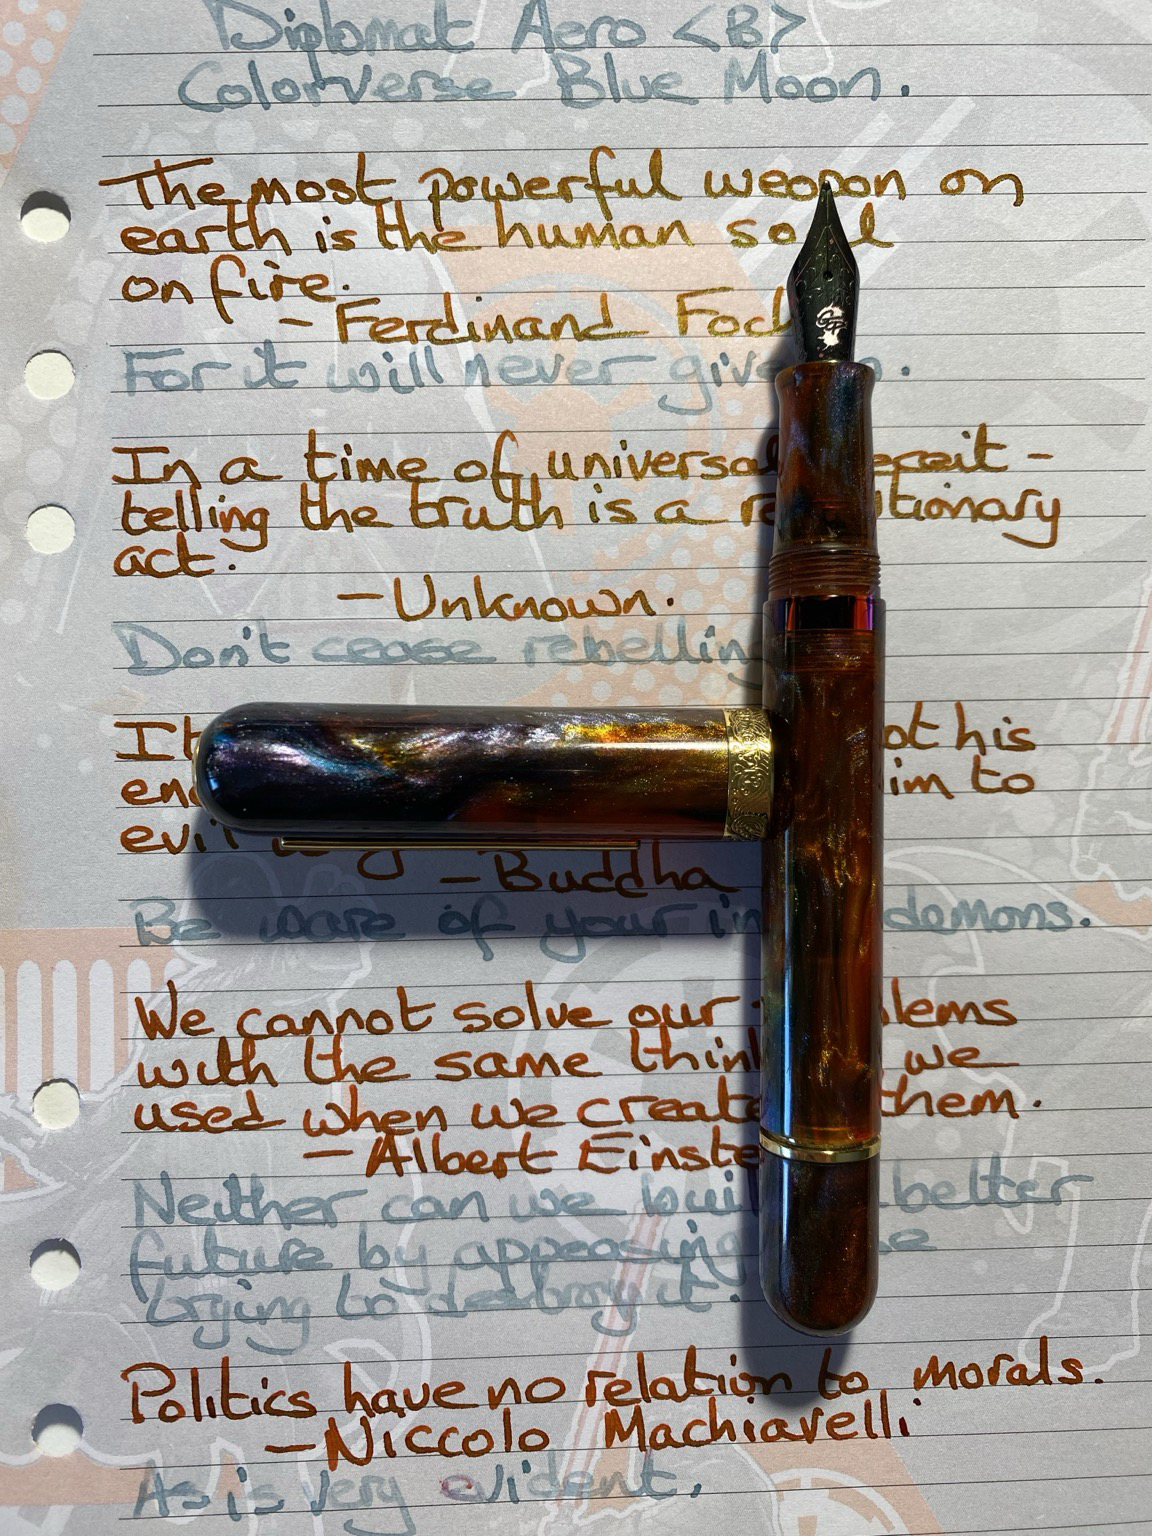 Diplomat Aero <B>
Colorverse Blue Moon.
The most powerful weapon on
earth is the human soul
on fire.
- Ferdinand Foch
For it will never give in.
In a time of universal deceit -
telling the truth is a revolutionary
act.
- Unknown.
Don't cease rebelling
It not his
him to
evil
- Buddha
Be ware of your demons.
We cannot solve our problems
with the same thinking we
used when we created them.
- Albert Einstein
Neither can we build better
future by appeasing
trying to destroy it.
Politics have no relation to morals.
- Niccolo Machiavelli
As is very evident.